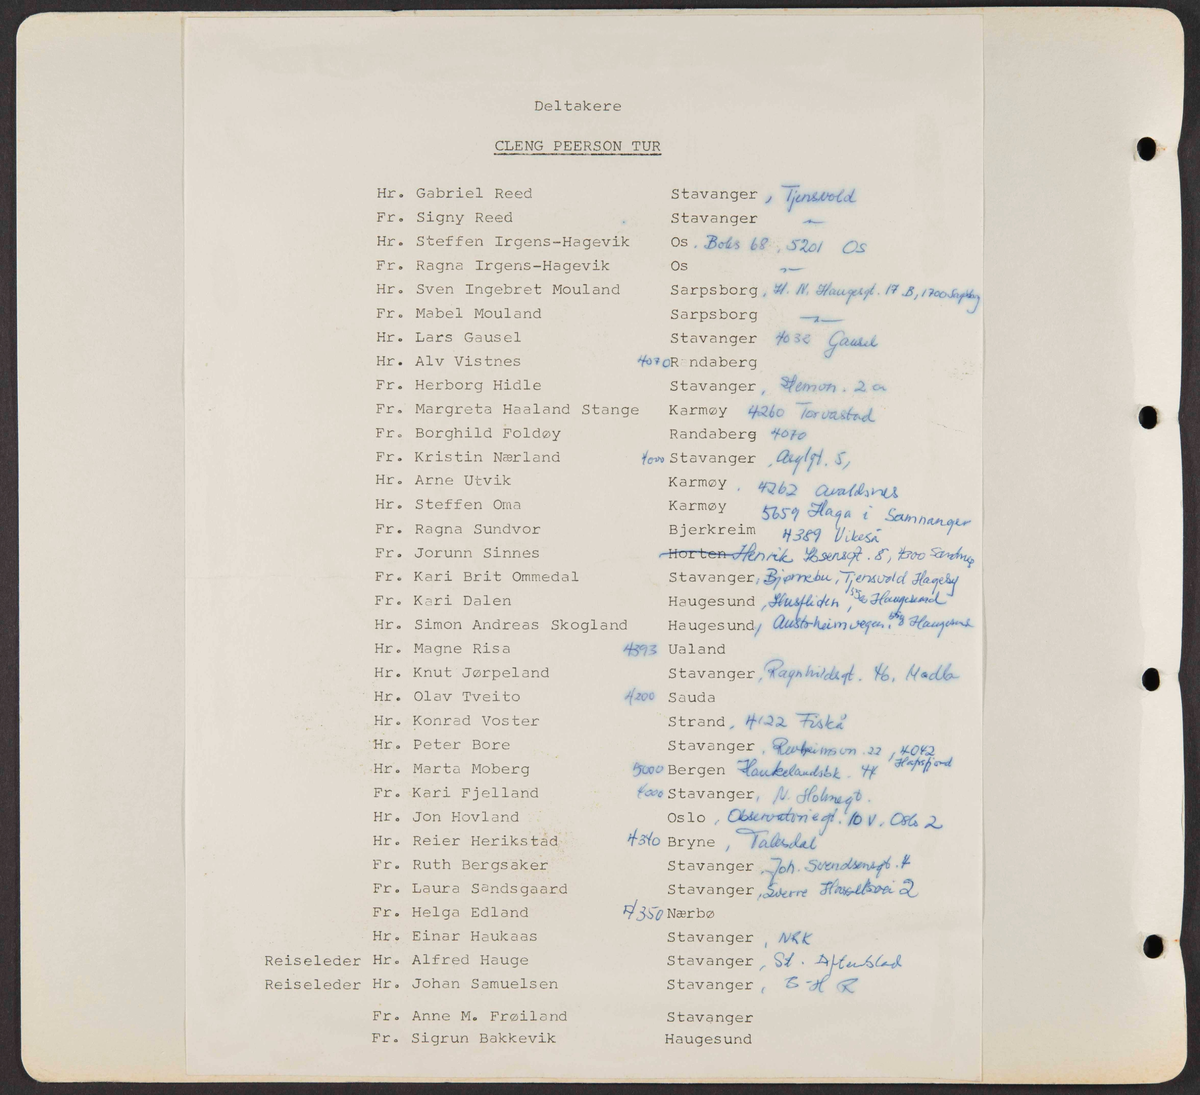 Deltakere
CLENG PEERSON TUR
Hr. Gabriel Reed Stavanger, Tjensvold
Fr. Signy Reed Stavanger —
Hr. Steffen Irgens-Hagevik Os. Boks 68, 5201 Os
Fr. Ragna Irgens-Hagevik Os —
Hr. Sven Ingebret Mouland Sarpsborg, H. N. Haugesgt. 17 B, 1700 Sarpsborg
Fr. Mabel Mouland Sarpsborg —
Hr. Lars Gausel Stavanger 4032 Gausel
Hr. Alv Vistnes 4070 R ndaberg
Fr. Herborg Hidle Stavanger, 2 a
Fr. Margreta Haaland Stange Karmøy 4260 Torvastad
Fr. Borghild Foldøy Randaberg 4070
Fr. Kristin Nærland 4000 Stavanger, 5,
Hr. Arne Utvik Karmøy. 4262 Avaldsnes
Hr. Steffen Oma Karmøy 5659 Haga i Samnanger
Fr. Ragna Sundvor Bjerkreim 4389 Vikeså
Fr. Jorunn Sinnes Horten Henrik Ibsensgt. 5, 4300 Sandnes
Fr. Kari Brit Ommedal Stavanger, Bjørnebu, Tjensvold Hageby
Fr. Kari Dalen Haugesund, Husfliden, Haugesund
Hr. Simon Andreas Skogland Haugesund, Austrheimvegen, Haugesund
Hr. Magne Risa 4393 Ualand
Hr. Knut Jørpeland Stavanger, Ragnhildsgt. 46, Madla
Hr. Olav Tveito 4200 Sauda
Hr. Konrad Voster Strand, 4122 Fiskå
Hr. Peter Bore Stavanger, Revheimsvn. 22, 4042 Hafrsfjord
Hr. Marta Moberg 5000 Bergen Haukelandsbk. 44
Fr. Kari Fjelland 4000 Stavanger, N. Holmegt.
Hr. Jon Hovland Oslo, Observatoriegt. 10 V. Oslo 2
Hr. Reier Herikstad 4340 Bryne,
Fr. Ruth Bergsaker Stavanger, Joh. Svendsensgt. 4
Fr. Laura Sandsgaard Stavanger, Sverre 2
Fr. Helga Edland 4350 Nærbø
Hr. Einar Haukaas Stavanger, NRK
Reiseleder Hr. Alfred Hauge Stavanger, St. Aftenblad
Reiseleder Hr. Johan Samuelsen Stavanger, B-H R
Fr. Anne M. Frøiland Stavanger
Fr. Sigrun Bakkevik Haugesund